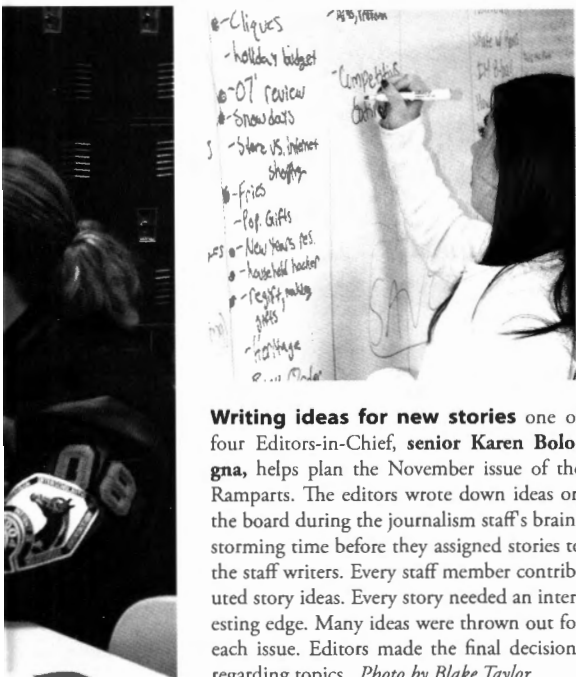 -Cliques
-holiday budget
-07' review
-Snow days
-Store vs. internet
shopping
-Fries
-Pop. Gifts
-New Year's res.
-household hacker
-regift, making
gifts
-heritage
-Competitive
SAVE
08
Writing ideas for new stories one o
four Editors-in-Chief, senior Karen Bolo
gna, helps plan the November issue of the
Ramparts. The editors wrote down ideas on
the board during the journalism staff's brain
storming time before they assigned stories to
the staff writers. Every staff member contrib
uted story ideas. Every story needed an inter
esting edge. Many ideas were thrown out fo
each issue. Editors made the final decision
regarding topics. Photo by Blake Taylor